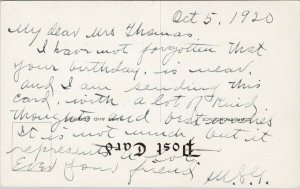 Oct 5, 1920
My dear Mrs Thomas
I have not forgotten that
your birthday is near,
and I am sending this
card, with a lot of kind
thoughts and best wishes
It is not much, but it
represents a lot.
Ever your friend
Post Card